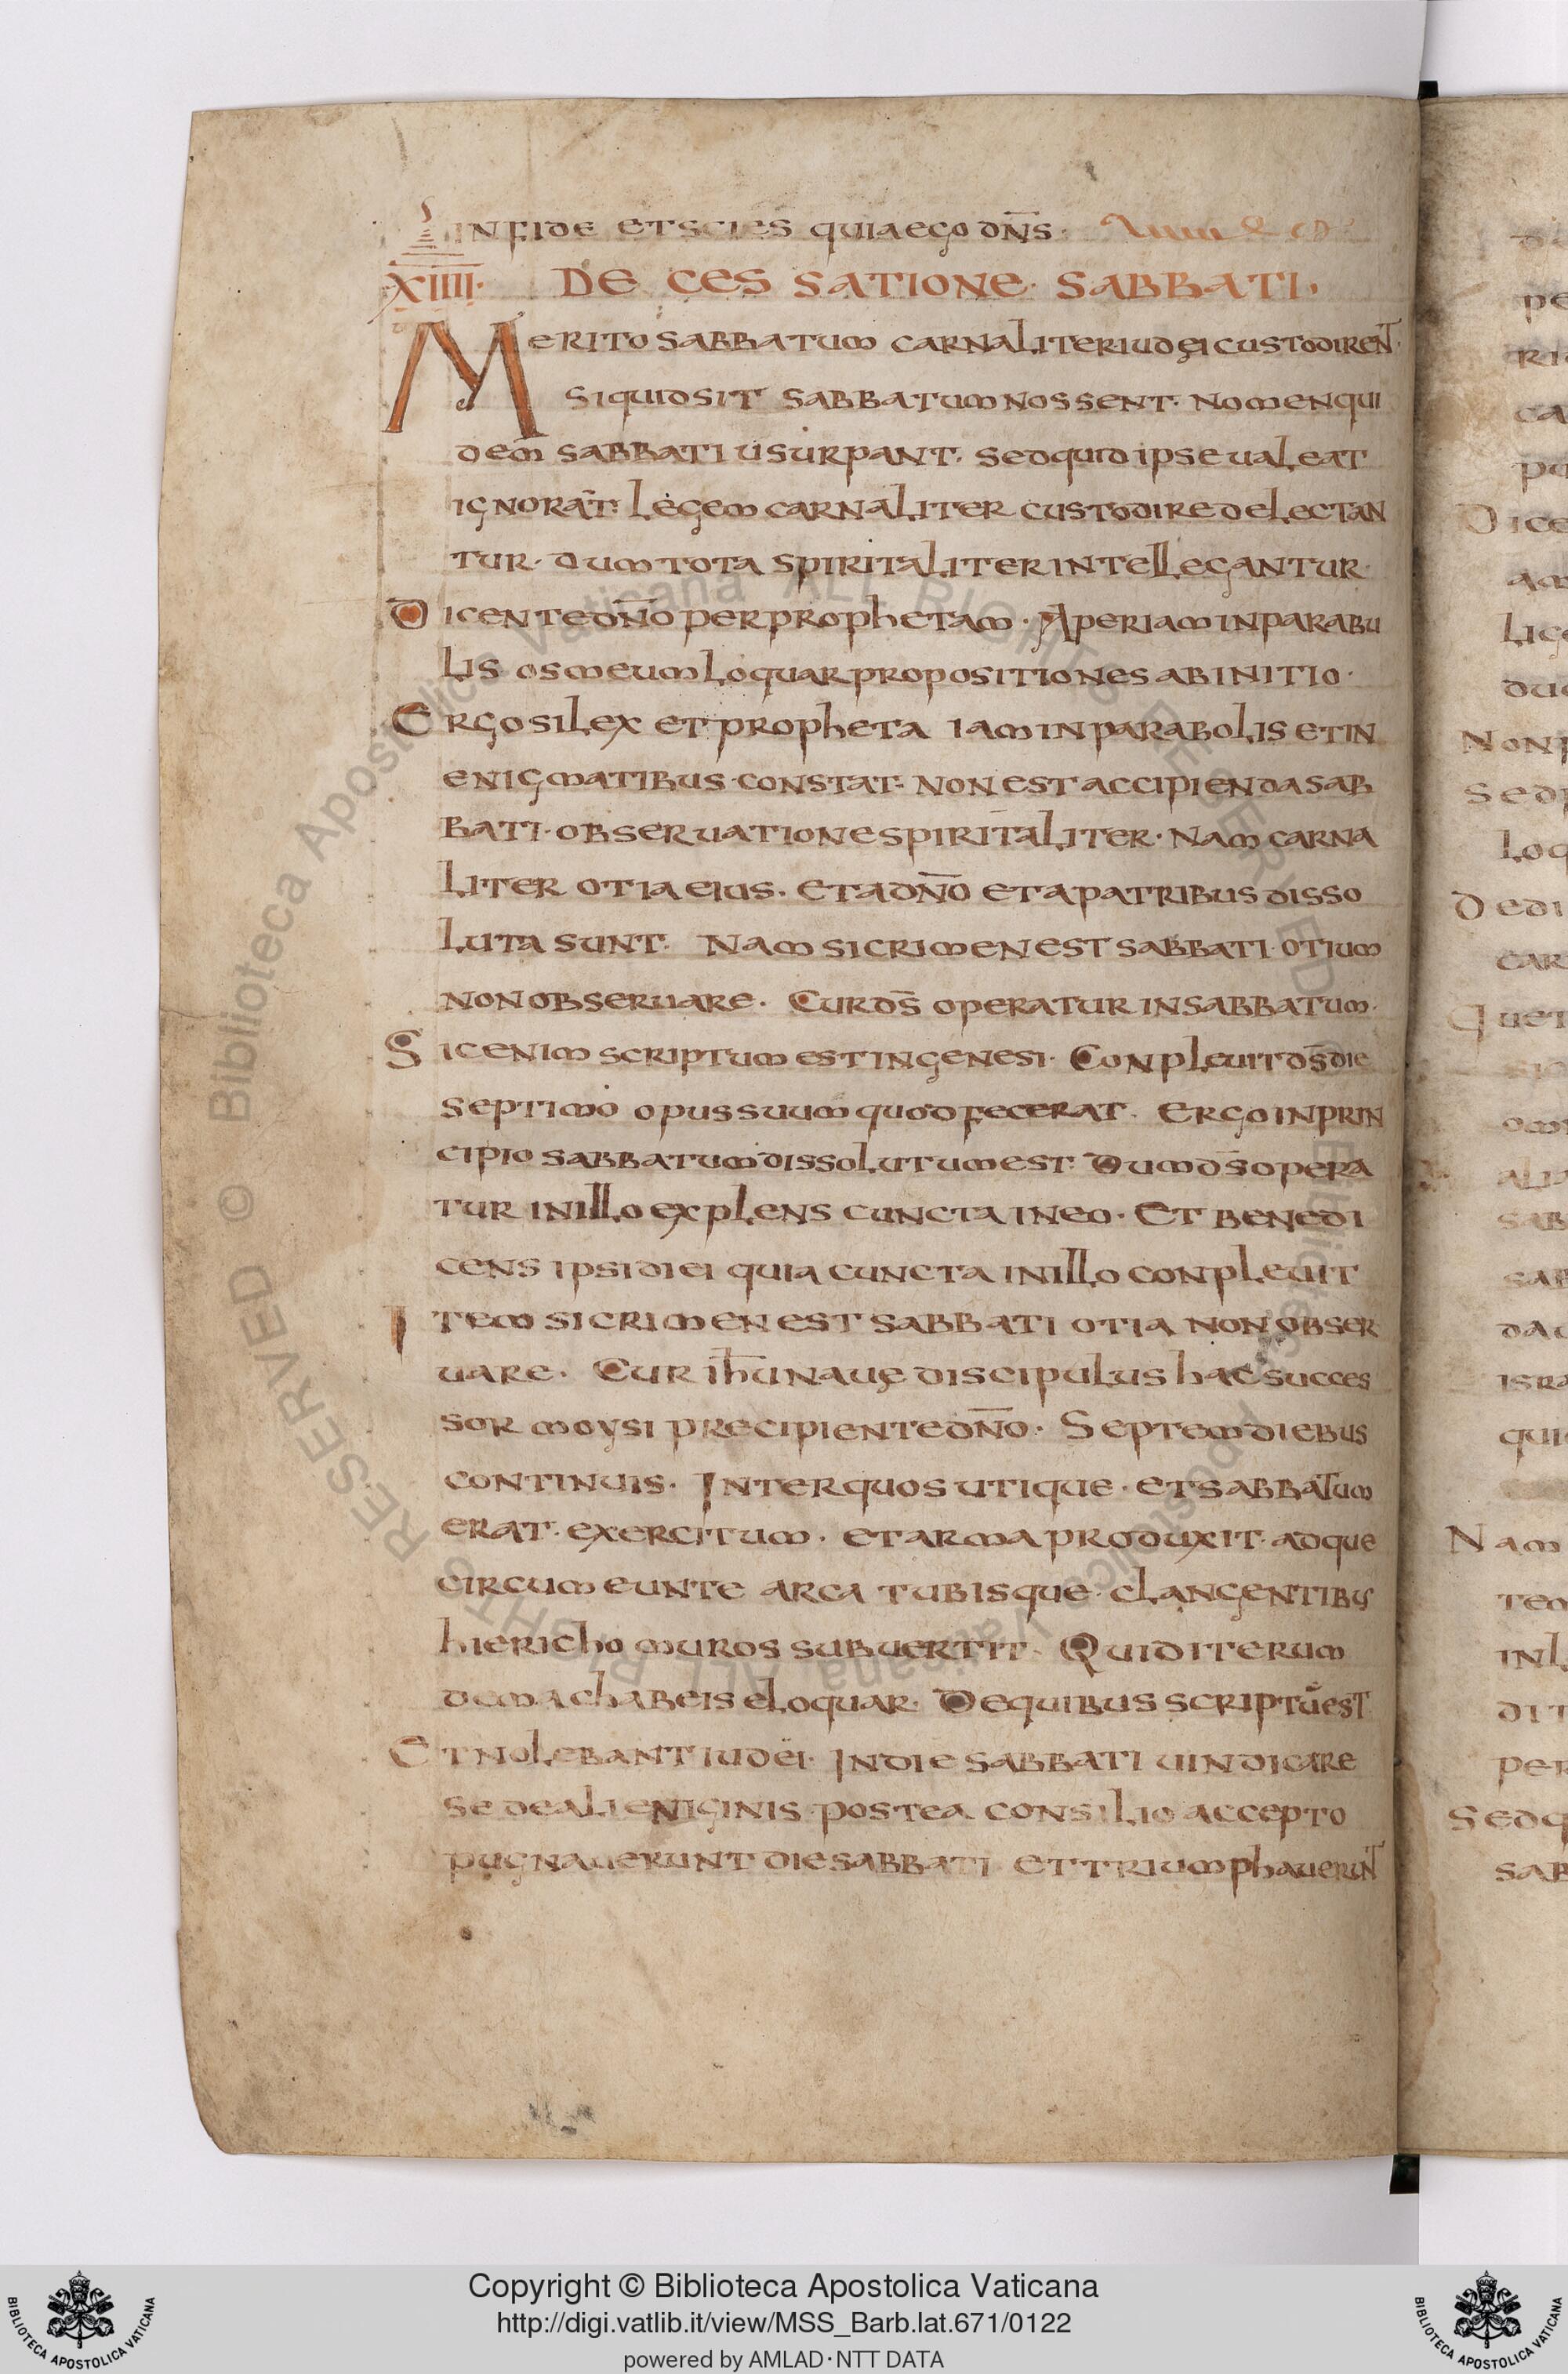 IN FIDE ET SCIES QUIA EGO DN̄S·
XIIII· DE CESSATIONE· SABBATI·
MERITO SABBATUM CARNALITER IUDęI CUSTODIRENT·
SI QUID SIT SABBATUM NOSSENT· NOMEN QUI
DEM SABBATI USURPANT· SED QUID IPSE UALEAT
IGNORAT̄: LEGEM CARNALITER CUSTODIRE DELECTAN
TUR· DUM TOTA SPIRITALITER INTELLEGANTUR·
DICENTE DN̄O PER PROPHETAM· APERIAM IN PARABU
LIS OS MEUM LOQUAR PROPOSITIONES AB INITIO·
ERGO SI LEX ET PROPHETA IAM IN PARABOLIS ET IN
ENIGMATIBUS CONSTAT· NON EST ACCIPIENDA SAB
BATI· OBSERUATIONE SPIRITALITER· NAM CARNA
LITER OTIA EIUS· ET A DN̄O ET A PATRIBUS DISSO
LUTA SUNT· NAM SI CRIMEN EST SABBATI· OTIUM
NON OBSERUARE· CUR DS̄ OPERATUR IN SABBATUM·
SIC ENIM SCRIPTUM EST IN GENESI· CONPLEUIT DS̄ DIE
SEPTIMO OPUS SUUM QUOD FECERAT· ERGO IN PRIN
CIPIO SABBATUM DISSOLUTUM EST· DUM DS̄ OPERA
TUR IN ILLO EXPLENS CUNCTA IN EO· ET BENEDI
CENS IPSI DIEI QUIA CUNCTA IN ILLO CONPLEUIT
ITEM SI CRIMEN EST SABBATI OTIA NON OBSER
UARE· CUR IH̄U NAUę DISCIPULUS HAC SUCCES
SOR MOYSI PRECIPIENTE DN̄O· SEPTEM DIEBUS
CONTINUIS· INTER QUOS UTIQUE· ET SABBATUM
ERAT· EXERCITUM· ET ARMA PRODUXIT· ADQUE
CIRCUMEUNTE ARCA TUBISQUE· CLANGENTIBUS
HIERICHO MUROS SUBUERTIT· QUID ITERUM
DE MACHABEIS ELOQUAR· DE QUIBUS SCRIPTŪ EST
ET NOLEBANT IUDEI· IN DIE SABBATI UINDICARE
SE DE ALIENIGINIS POSTEA CONSILIO ACCEPTO
PUGNAUERUNT DIE SABBATI ET TRIUMPHAUERUNT
Copyright © Biblioteca Apostolica Vaticana
http://digi.vatlib.it/view/MSS_Barb.lat.671/0122
powered by AMLAD·NTT DATA